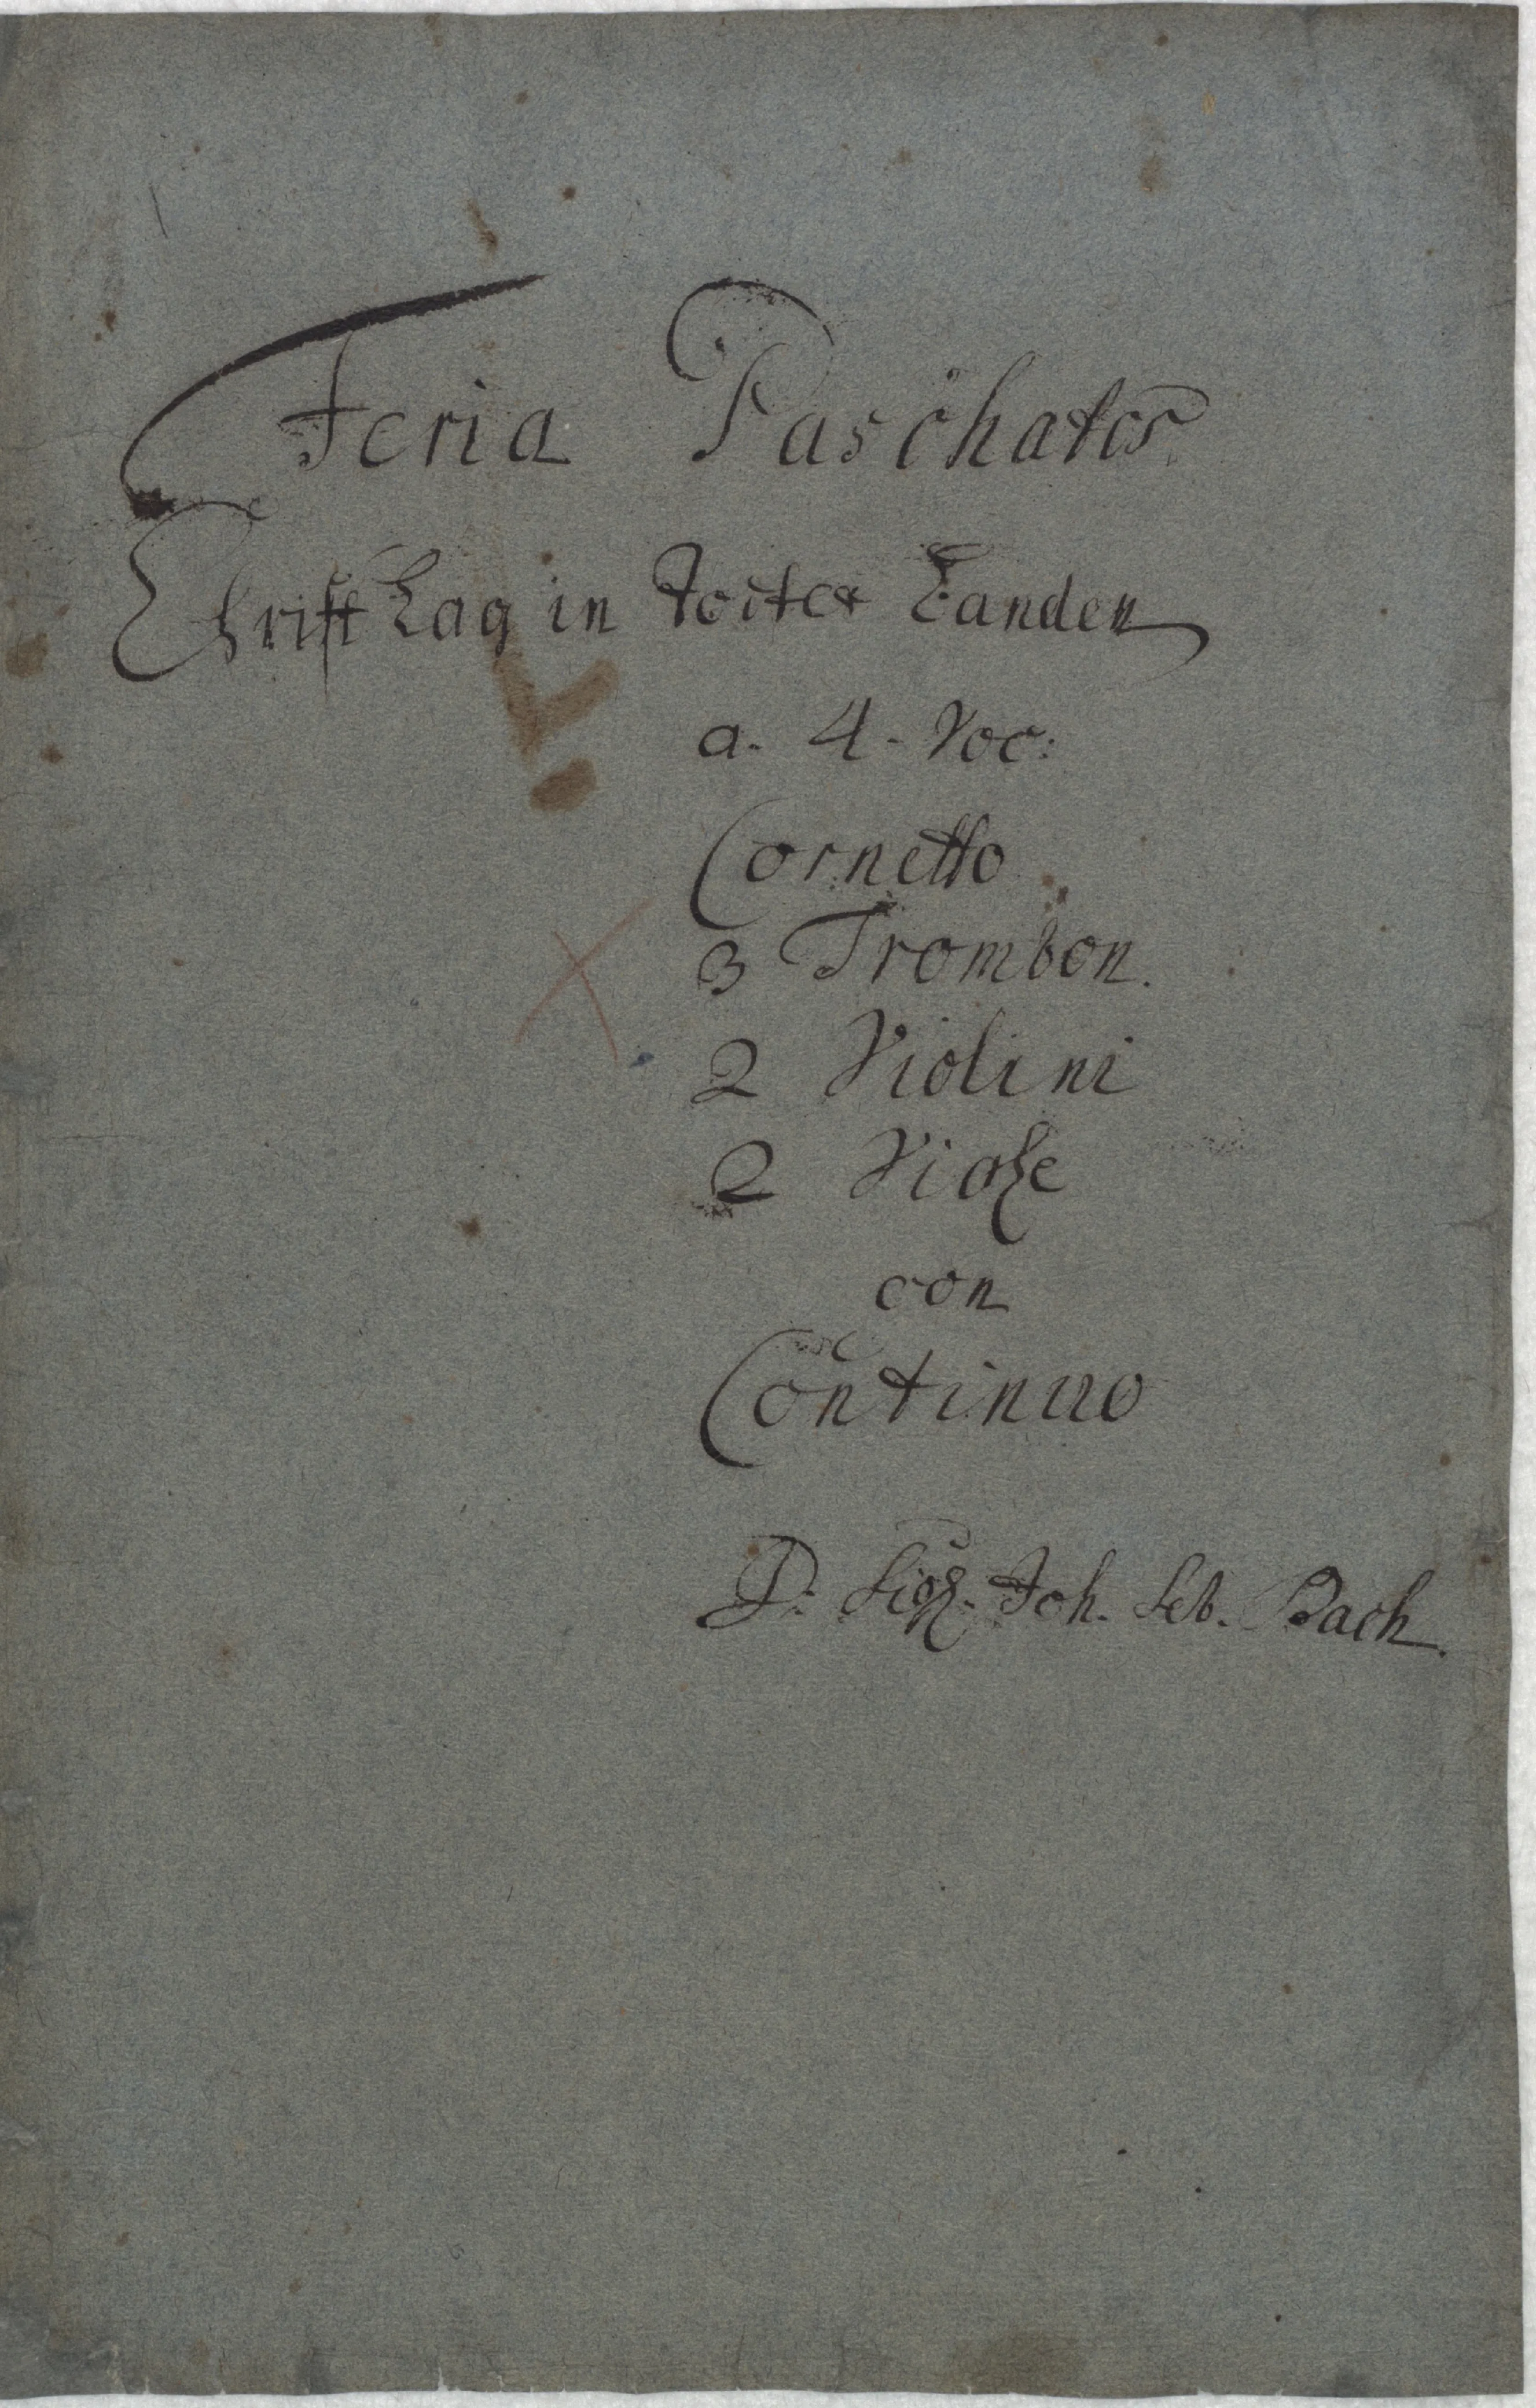 Feria Paschatos
Christ lag in Todtes Banden
a. 4. Voc:
Cornetto
3 Trombon.
2 Violini
2 Viole
con
Continuo
D. Sigl. Joh. Seb. Bach.